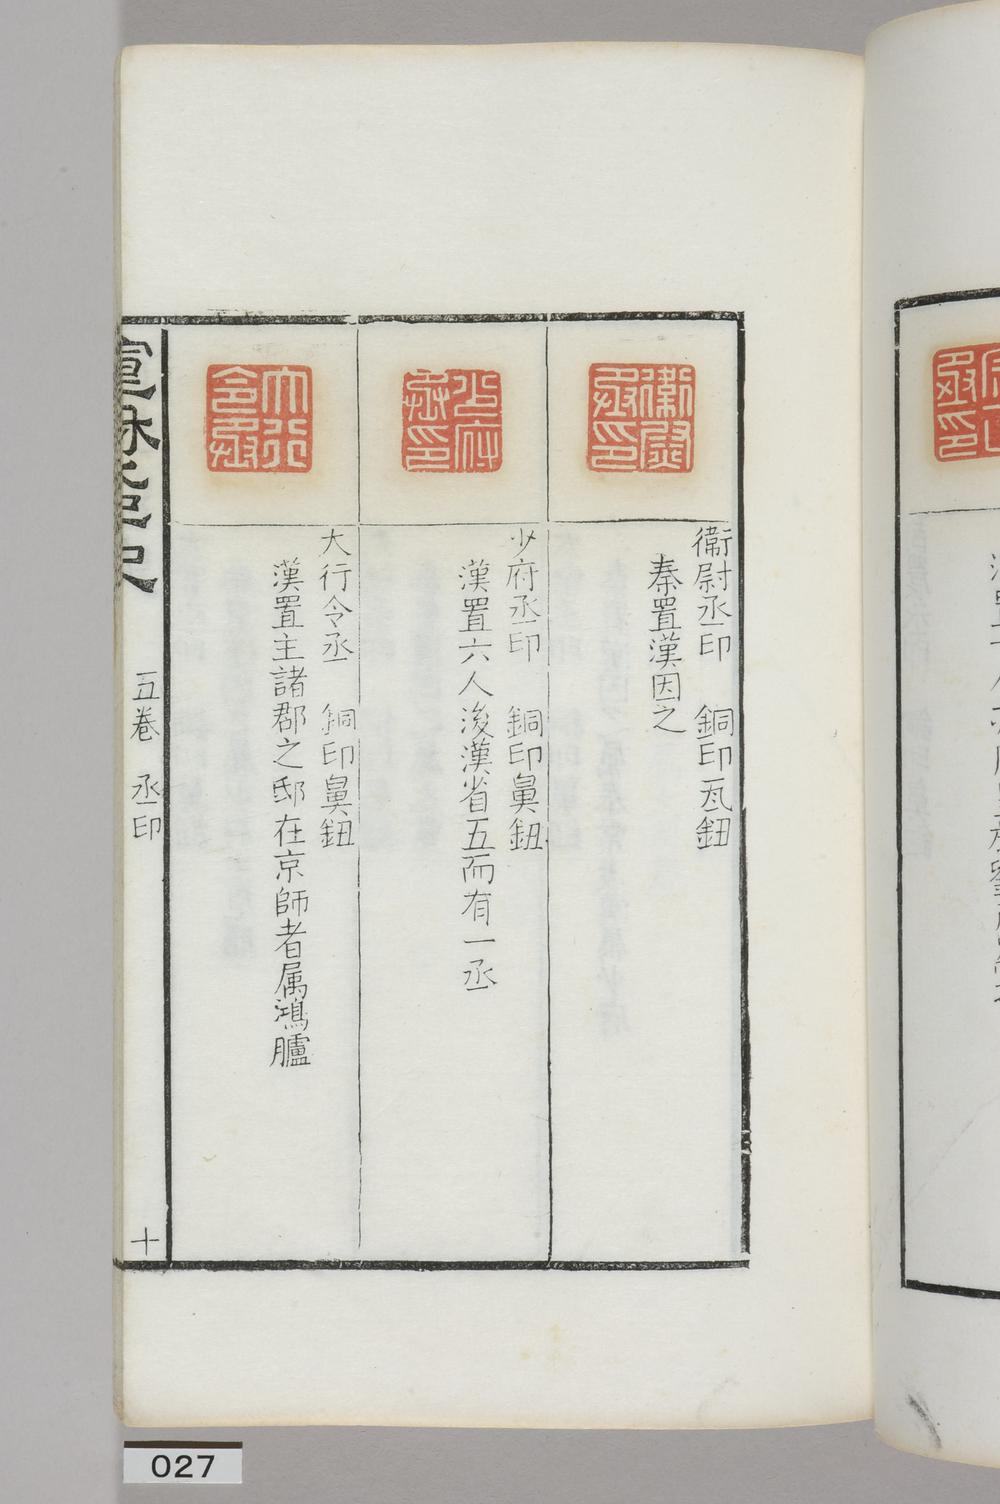 衞尉丞印
衞尉丞印　銅印瓦鈕
秦置漢因之
少府丞印
少府丞印　銅印鼻鈕
漢置六人後漢省五而有一丞
大行令丞
大行令丞　銅印鼻鈕
漢置主諸郡之邸在京師者属鴻臚
五卷　丞印
十
027